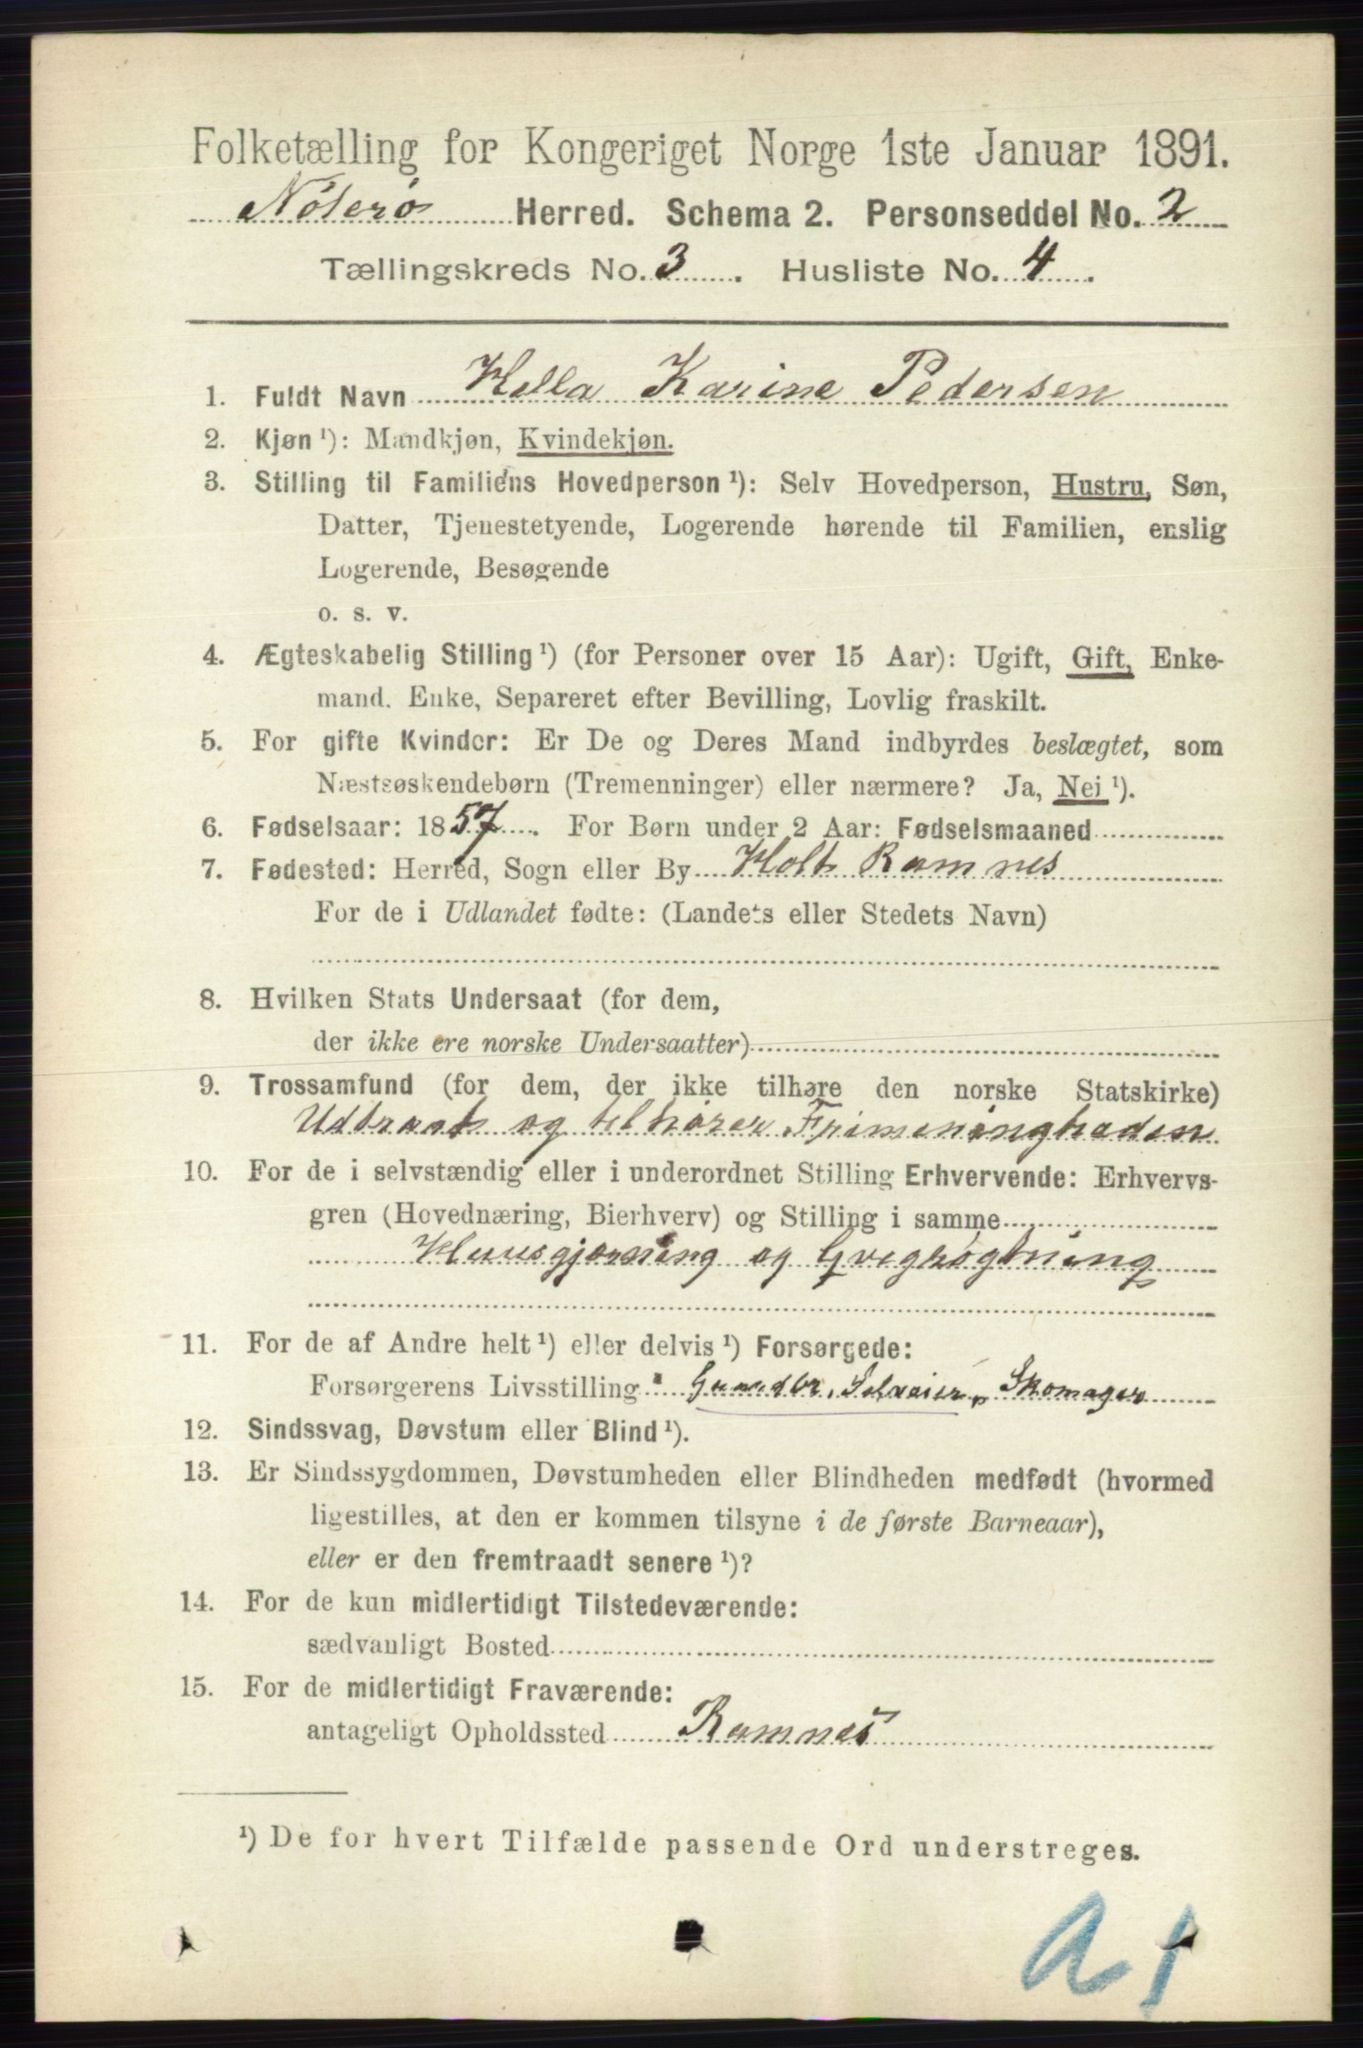 Folketælling for Kongeriget Norge 1ste Januar 1891.
Nøterø Herred. Schema 2. Personseddel No. 2
Tællingskreds No. 3. Husliste No. 4.
1. Fuldt Navn Hella Karine Pedersen
2. Kjøn ¹): Mandkjøn, Kvindekjøn.
3. Stilling til Familiens Hovedperson ¹): Selv Hovedperson, Hustru, Søn,
Datter, Tjenestetyende, Logerende hørende til Familien, enslig
Logerende, Besøgende
o. s. v.
4. Ægteskabelig Stilling ¹) (for Personer over 15 Aar): Ugift, Gift, Enke-
mand, Enke, Separeret efter Bevilling, Lovlig fraskilt.
5. For gifte Kvinder: Er De og Deres Mand indbyrdes beslægtet, som
Næstsøskendebørn (Tremenninger) eller nærmere? Ja, Nei ¹).
6. Fødselsaar: 1857. For Børn under 2 Aar: Fødselsmaaned
7. Fødested: Herred, Sogn eller By Holt Ramnes
For de i Udlandet fødte: (Landets eller Stedets Navn)
8. Hvilken Stats Undersaat (for dem,
der ikke ere norske Undersaatter)
9. Trossamfund (for dem, der ikke tilhøre den norske Statskirke)
Udtraat og tilhører Frimeningheden
10. For de i selvstændig eller i underordnet Stilling Erhvervende: Erhvervs-
gren (Hovednæring, Bierhverv) og Stilling i samme
Huusgjerning og Qvegrøgtning
11. For de af Andre helt ¹) eller delvis ¹) Forsørgede:
Forsørgerens Livsstilling Gaardbr, Selveier, Skomager
12. Sindssvag, Døvstum eller Blind ¹).
13. Er Sindssygdommen, Døvstumheden eller Blindheden medfødt (hvormed
ligestilles, at den er kommen tilsyne i de første Barneaar),
eller er den fremtraadt senere ¹)?
14. For de kun midlertidigt Tilstedeværende:
sædvanligt Bosted
15. For de midlertidigt Fraværende:
antageligt Opholdssted Ramnes
¹) De for hvert Tilfælde passende Ord understreges.
a 1